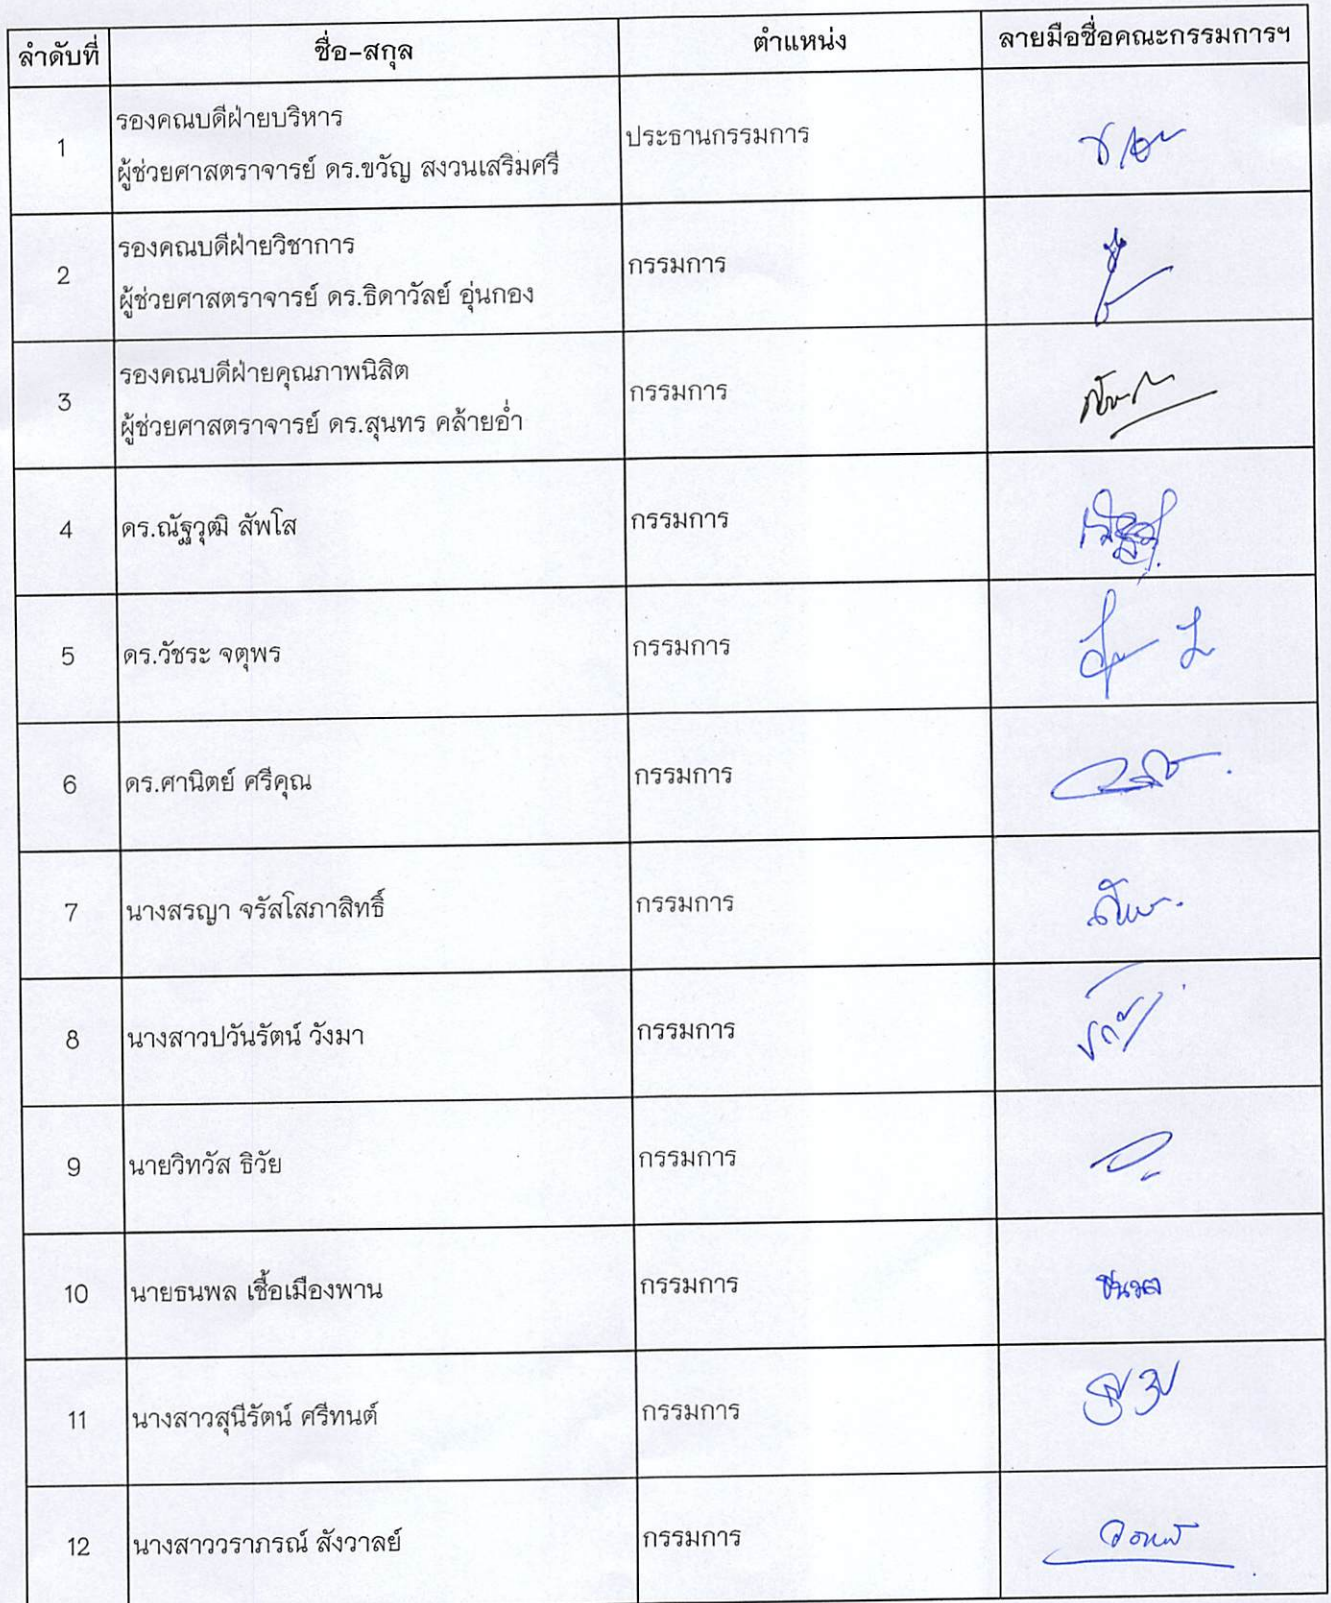 ลำดับที่ ชื่อ-สกุล ตำแหน่ง ลายมือชื่อคณะกรรมการฯ
รองคณบดีฝ่ายบริหาร
1 ผู้ช่วยศาสตราจารย์ ดร.ขวัญ สงวนเสริมศรี ประธานกรรมการ
รองคณบดีฝ่ายวิชาการ
2 ผู้ช่วยศาสตราจารย์ ดร.ธิดาวัลย์ อุ่นกอง กรรมการ
รองคณบดีฝ่ายคุณภาพนิสิต
3 ผู้ช่วยศาสตราจารย์ ดร.สุนทร คล้ายอ่ำ กรรมการ
4 ดร.ณัฐวุฒิ สัพโส กรรมการ
5 ดร.วัชระ จตุพร กรรมการ
6 ดร.ศานิตย์ ศรีคุณ กรรมการ
7 นางสรญา จรัสโสภาสิทธิ์ กรรมการ
8 นางสาวปวันรัตน์ วังมา กรรมการ
9 นายวิทวัส ธิวัย กรรมการ
10 นายธนพล เชื้อเมืองพาน กรรมการ
11 นางสาวสุนีรัตน์ ศรีทนต์ กรรมการ
12 นางสาววราภรณ์ สังวาลย์ กรรมการ